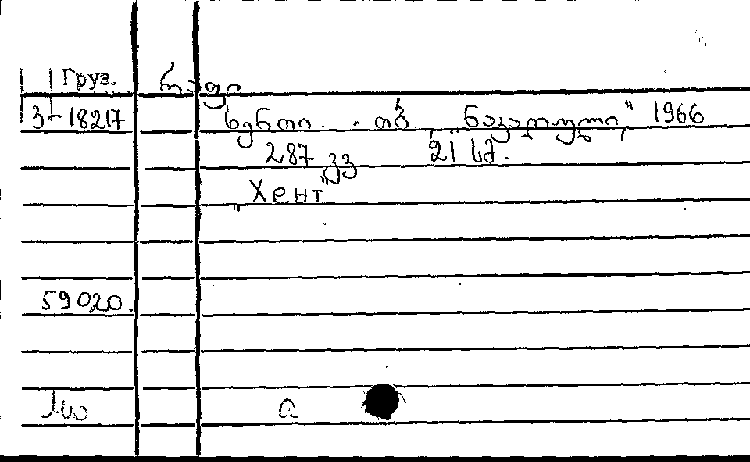 Груз. რაფი
3-18217 ხენთი . თბ. „ნაკადული" 1966
287 გვ 21 სმ.
„Хент"
59020.